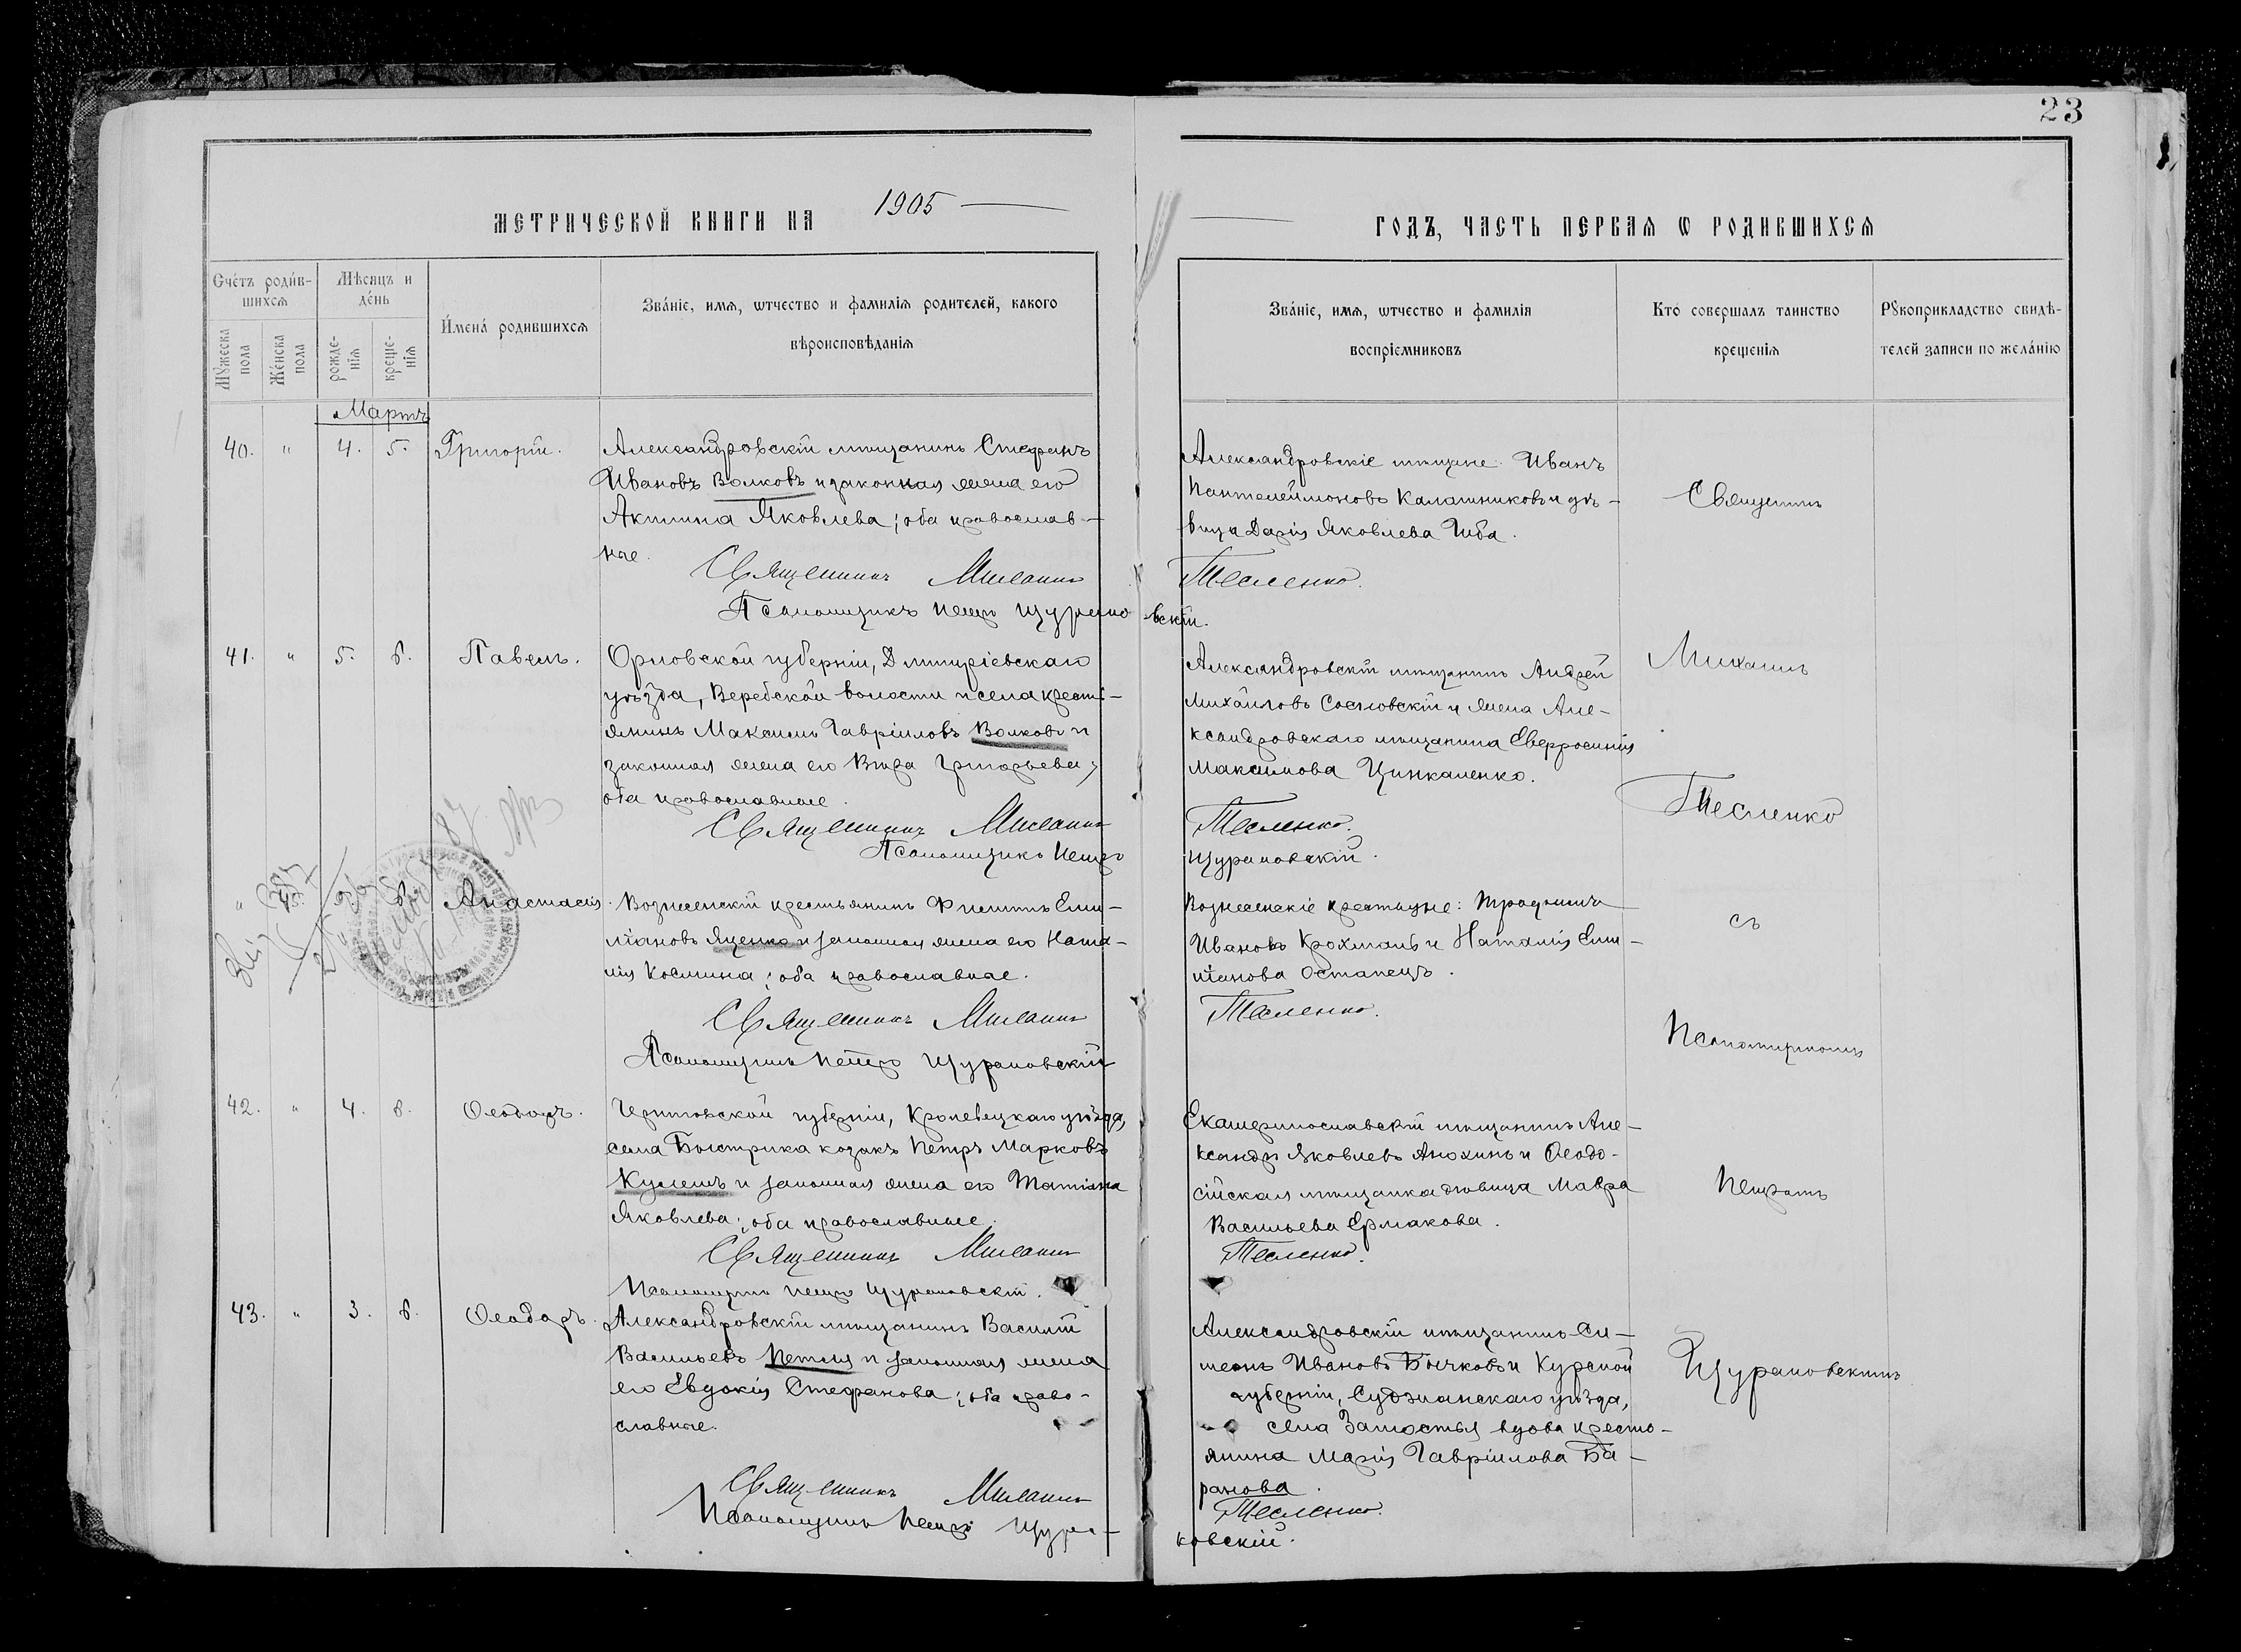 23
МЕТРИЧЕСКОЙ КНИГИ НА 1905
ГОДЪ, ЧАСТЬ ПЕРВАЯ Ѡ РОДИВШИХСЯ
Счётъ роди́в-
шихсѧ
Мꙋжеска пола
Же́нска пола
Мѣсѧцъ и
де́нь
рожде-
нїѧ
креще-
нїѧ
И́мена́ родившихсѧ
Зва́нїе, имѧ, ѡтчество и фамилїѧ родителей, какого
вѣроисповѣданїѧ
Зва́нїе, имѧ, ѡтчество и фамилїѧ
воспрїемниковъ
Кто́ совершалъ таинство
крещенїѧ
Рꙋкоприкладство свидѣ-
телей записи по жела́нїю
Мартъ
40. " 4. 5. Григорій.
Александровскій мѣщанинъ Стефанъ
Ивановъ Волковъ и законная жена его
Акилина Яковлева; оба православ-
ные.
Священникъ Михаилъ
Тесленко.
Псаломщикъ Петръ Щурановскій.
Александровскіе мѣщане: Иванъ
Пантелеймоновъ Калашниковъ и дѣ-
вица Дарія Яковлева
41. " 5. 6. Павелъ.
Орловской губерніи, Дмитріевскаго
уѣзда, Веребской волости и села крестъ-
янинъ Максимъ Гавріиловъ Волковъ и
законная жена его Вѣра Григорьева;
оба православные.
Священникъ Михаилъ
Тесленко.
Псаломщикъ Петръ
Щурановскій.
Александровскій мѣщанинъ Андрей
Михайловъ Сосновскій и жена Але-
ксандровскаго мѣщанина Евфросинія
Максимова Цинкаленко.
" 6. Анастасія.
Вознесенскій крестьянинъ Филиппъ Еми-
ліановъ Яценко и законная жена его Ната-
лія Космина; оба православные.
Священникъ Михаилъ
Тесленко.
Псаломщикъ Петръ Щурановскій
Вознесенскіе крестьяне: Трофимъ
Ивановъ Крохмаль и Наталія Еми-
ліанова Остапецъ.
42. " 4. 6. Ѳеодоръ.
Черниговской губерніи, Кролевецкаго уѣзда,
села Быстрика козакъ Петръ Марковъ
Кулешъ и законная жена его Татіана
Яковлева; оба православные.
Священникъ Михаилъ
Тесленко.
Псаломщикъ Петръ Щурановскій.
Екатеринославскій мѣщанинъ Але-
ксандръ Яковлевъ Анохинъ и Ѳеодо-
сійская мѣщанка дѣвица Мавра
Васильева Ермакова.
43. " 3. 6. Ѳеодоръ.
Александровскій мѣщанинъ Василій
Васильевъ Петля и законная жена
его Евдокія Стефанова; оба право-
славные.
Священникъ Михаилъ
Тесленко.
Псаломщикъ Петръ Щура-
новскій.
Александровскій мѣщанинъ Си-
меонъ Ивановъ Бычковъ и Курской
губерніи, Суджанскаго уѣзда,
села Замостья вдова кресть-
янина Марія Гавріилова Ба-
ранова.
Священникъ
Михаилъ
Тесленко
съ
Псаломщикомъ
Петромъ
Щурановскимъ